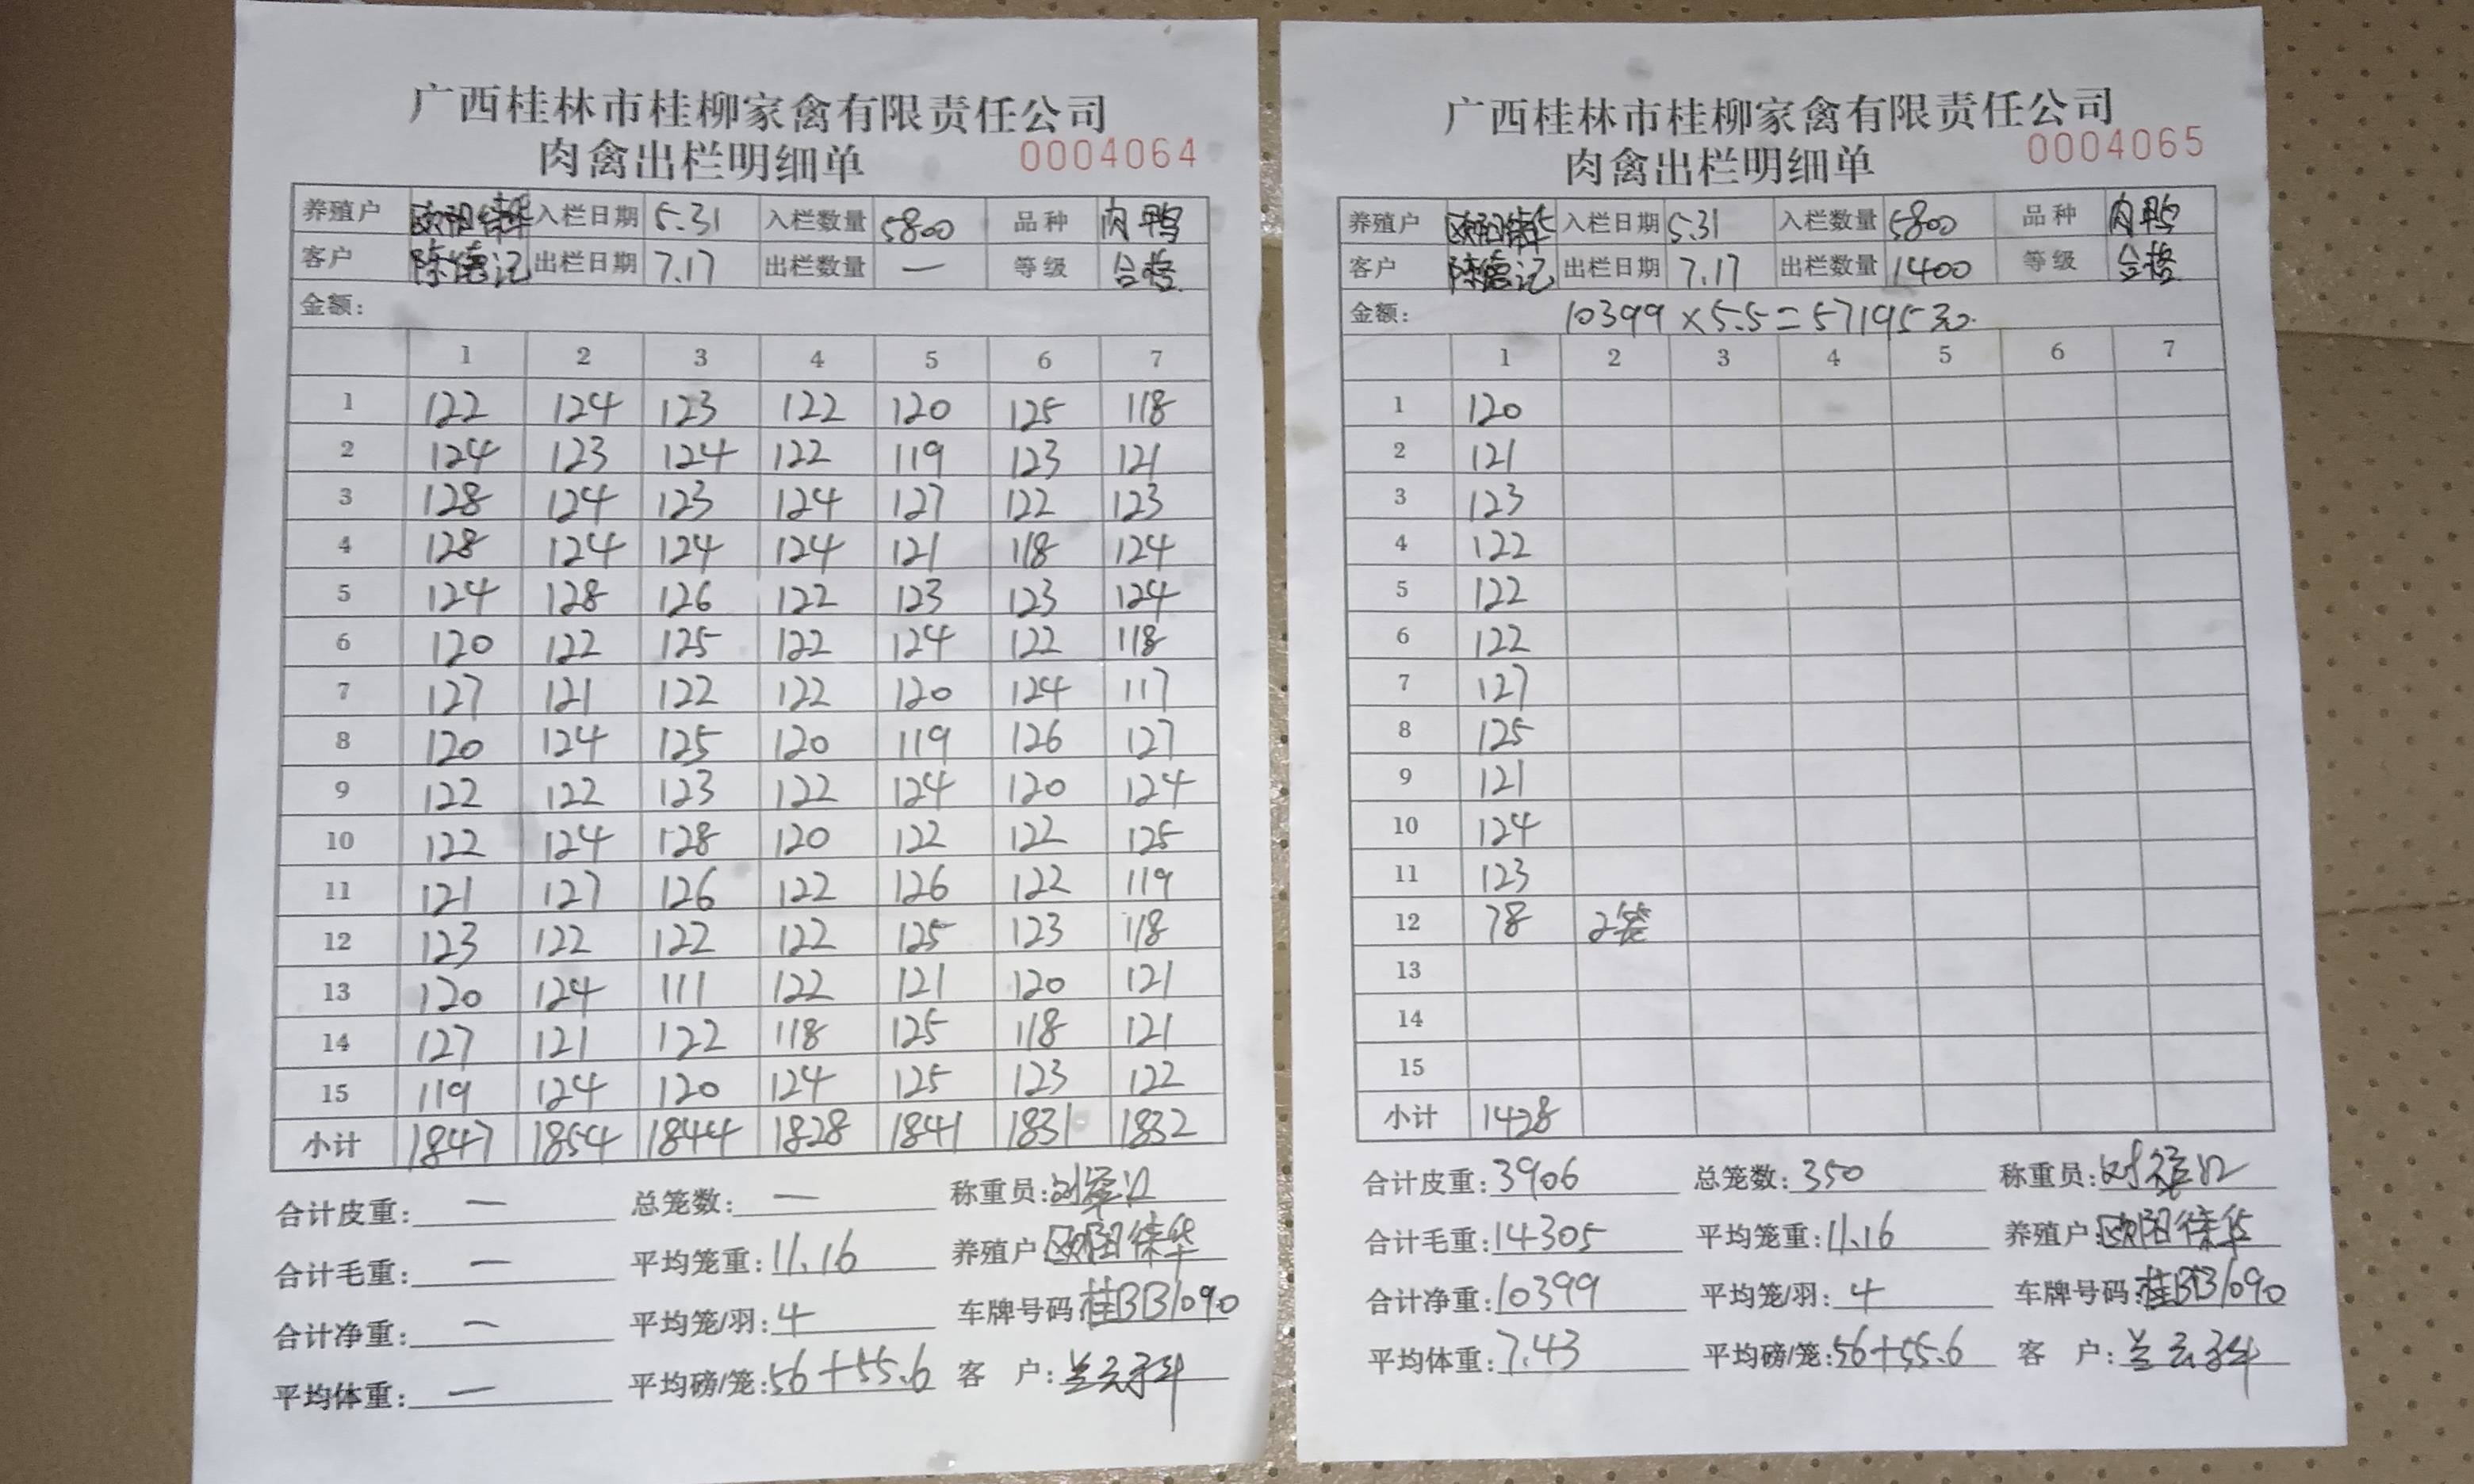 广西桂林市桂柳家禽有限责任公司
肉禽出栏明细单 0004064
养殖户 欧阳徐华 入栏日期 5.31 入栏数量 5800 品种 肉鸭
客户 陈德记 出栏日期 7.17 出栏数量 — 等级 合格
金额:
1 2 3 4 5 6 7
1 122 124 123 122 120 125 118
2 124 123 124 122 119 123 121
3 128 124 123 124 127 122 123
4 128 124 124 124 121 118 124
5 124 128 126 122 123 123 124
6 120 122 125 122 124 122 118
7 127 121 122 122 120 124 117
8 120 124 125 120 119 126 127
9 122 122 123 122 124 120 124
10 122 124 128 120 122 122 125
11 121 127 126 122 126 122 119
12 123 122 122 122 125 123 118
13 120 124 111 122 121 120 121
14 127 121 122 118 125 118 121
15 119 124 120 124 125 123 122
小计 1847 1854 1844 1828 1841 1831 1832
合计皮重: — 总笼数: — 称重员:
合计毛重: — 平均笼重: 11.16 养殖户 欧阳徐华
合计净重: — 平均笼/羽: 4 车牌号码: 桂BB1090
平均体重: — 平均磅/笼: 56+55.6 客 户:
广西桂林市桂柳家禽有限责任公司
肉禽出栏明细单 0004065
养殖户 欧阳徐华 入栏日期 5.31 入栏数量 5800 品种 肉鸭
客户 陈德记 出栏日期 7.17 出栏数量 1400 等级 合格
金额: 10399×5.5=57195元
1 2 3 4 5 6 7
1 120
2 121
3 123
4 122
5 122
6 122
7 127
8 125
9 121
10 124
11 123
12 78 2袋
13
14
15
小计 1428
合计皮重: 3906 总笼数: 350 称重员:
合计毛重: 14305 平均笼重: 11.16 养殖户: 欧阳徐华
合计净重: 10399 平均笼/羽: 4 车牌号码: 桂BB1090
平均体重: 7.43 平均磅/笼: 56+55.6 客 户: